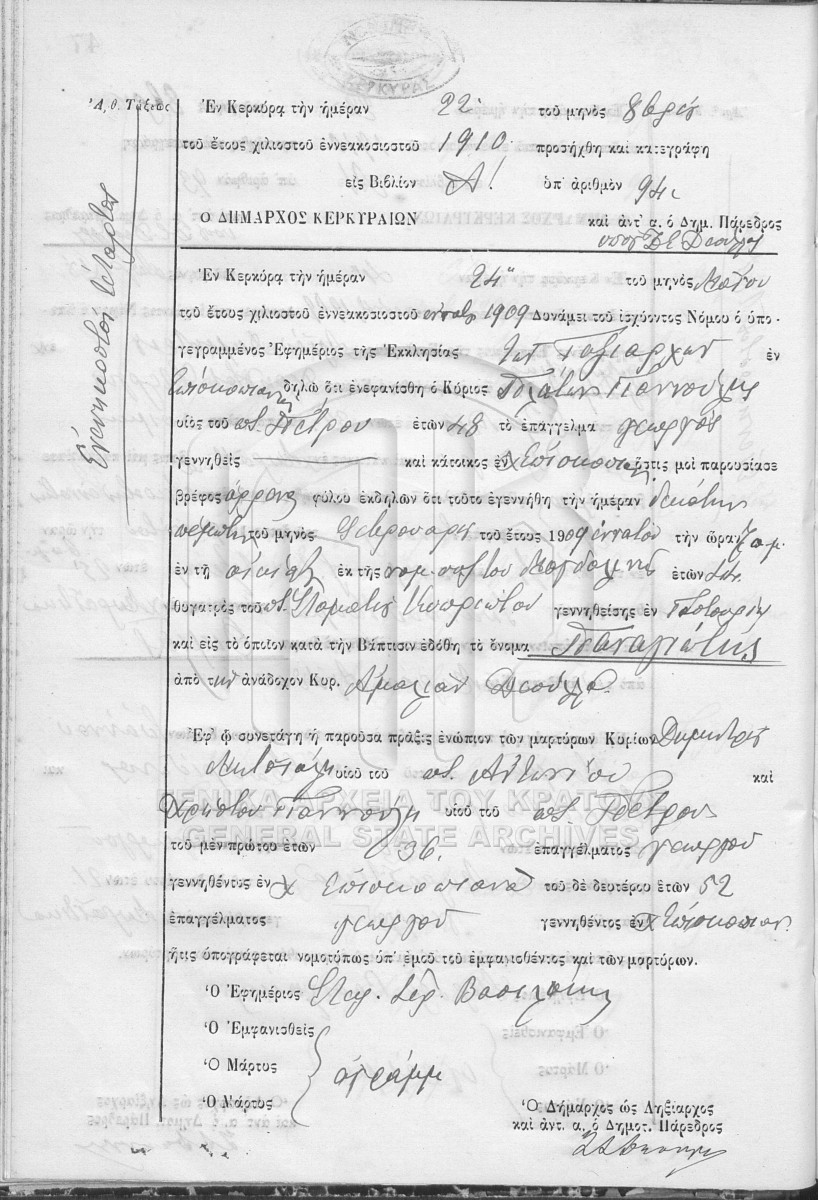 ΚΕΡΚΥΡΑΣ
Ἀ, θ. Τάξεως
Ἐνενηκοστὸς τέταρτος
Ἐν Κερκύρᾳ τὴν ἡμέραν 22 τοῦ μηνὸς 8βρίου
τοῦ ἔτους χιλιοστοῦ ἐννεακοσιοστοῦ 1910 προσήχθη καὶ κατεγράφη
εἰς Βιβλίον Α! ὑπ' ἀριθμὸν 94
Ο ΔΗΜΑΡΧΟΣ ΚΕΡΚΥΡΑΙΩΝ καὶ ἀντ' α. ὁ Δημ. Πάρεδρος
Ἐν Κερκύρᾳ τὴν ἡμέραν 24 τοῦ μηνὸς
τοῦ ἔτους χιλιοστοῦ ἐννεακοσιοστοῦ 1909 Δυνάμει τοῦ ἰσχύοντος Νόμου ὁ ὑπο-
γεγραμμένος Ἐφημέριος τῆς Ἐκκλησίας τῶν Ταξιαρχῶν ἐν
Ἐπισκοπιανᾶ δηλῶ ὅτι ἐνεφανίσθη ὁ Κύριος Γιαννούλης
υἱὸς τοῦ π. Πέτρου ἐτῶν 48 τὸ ἐπάγγελμα γεωργὸς
γεννηθεὶς καὶ κάτοικος ἐν χ Ἐπισκοπιανᾶ ὅστις μοὶ παρουσίασε
βρέφος ἄρρενος φύλου ἐκδηλῶν ὅτι τοῦτο ἐγεννήθη τὴν ἡμέραν δεκάτην
πέμπτην τοῦ μηνὸς Φεβρουαρίου τοῦ ἔτους 1909 ἐννάτου τὴν ὥραν 7 π.μ.
ἐν τῇ οἰκίᾳ ἐκ τῆς νομ. συζ. του Μαγδαληνῆς ἐτῶν
θυγατρὸς τοῦ π. Σταμάτη Κυπριώτου γεννηθείσης ἐν Γαστούρι
καὶ εἰς τὸ ὁποῖον κατὰ τὴν Βάπτισιν ἐδόθη τὸ ὄνομα Παναγιώτης
ἀπὸ τὴν ἀνάδοχον Κυρ. Ἀμαλίαν
Ἐφ' ᾧ συνετάγη ἡ παροῦσα πρᾶξις ἐνώπιον τῶν μαρτύρων Κυρίων Δημητρίου
υἱοῦ τοῦ π. Ἀντωνίου καὶ
Χρήστου Γιαννούλη υἱοῦ τοῦ π. Πέτρου
ΓΕΝΙΚΑ ΑΡΧΕΙΑ ΤΟΥ ΚΡΑΤΟΥΣ
GENERAL STATE ARCHIVES
τοῦ μὲν πρώτου ἐτῶν 36. ἐπαγγέλματος γεωργοῦ
γεννηθέντος ἐν χ Ἐπισκοπιανὰ τοῦ δὲ δευτέρου ἐτῶν 52
ἐπαγγέλματος γεωργοῦ γεννηθέντος ἐν χ Ἐπισκοπιαν.
ἥτις ὑπογράφεται νομοτύπως ὑπ' ἐμοῦ τοῦ ἐμφανισθέντος καὶ τῶν μαρτύρων.
Ὁ Ἐφημέριος Βασιλάκης
Ὁ Ἐμφανισθεὶς
Ὁ Μάρτυς ἀγράμμ
Ὁ Μάρτυς
Ὁ Δήμαρχος ὡς Ληξίαρχος
καὶ ἀντ. α. ὁ Δημοτ. Πάρεδρος